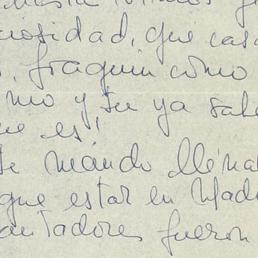 ciosidad, que cas
Joaquín como
mo y, tu ya sabe
que es,
te mando llena
que estar en Mad
antadores fueron